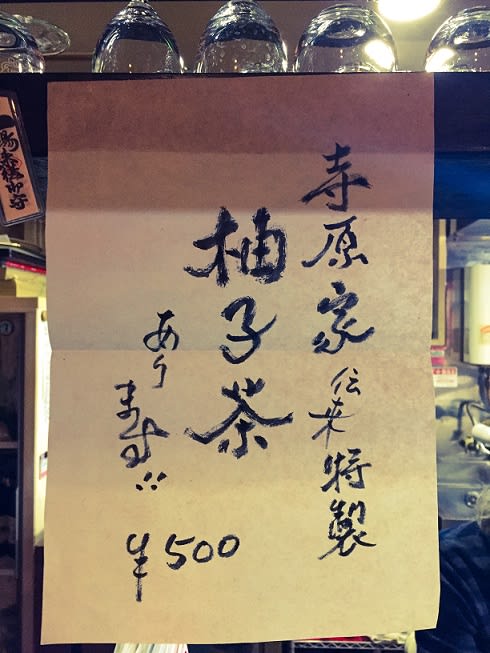 寺原家伝来特製
柚子茶
あります
¥500